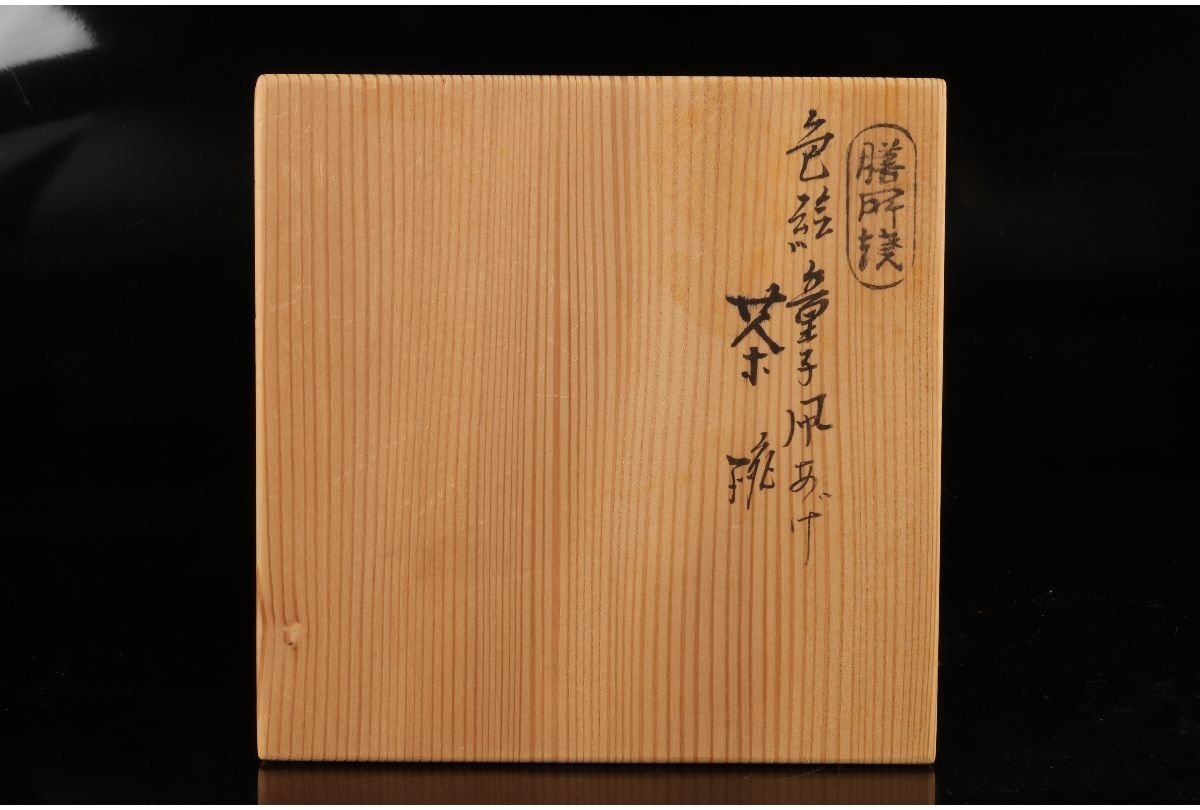 膳所焼
色絵童子凧あげ
茶碗